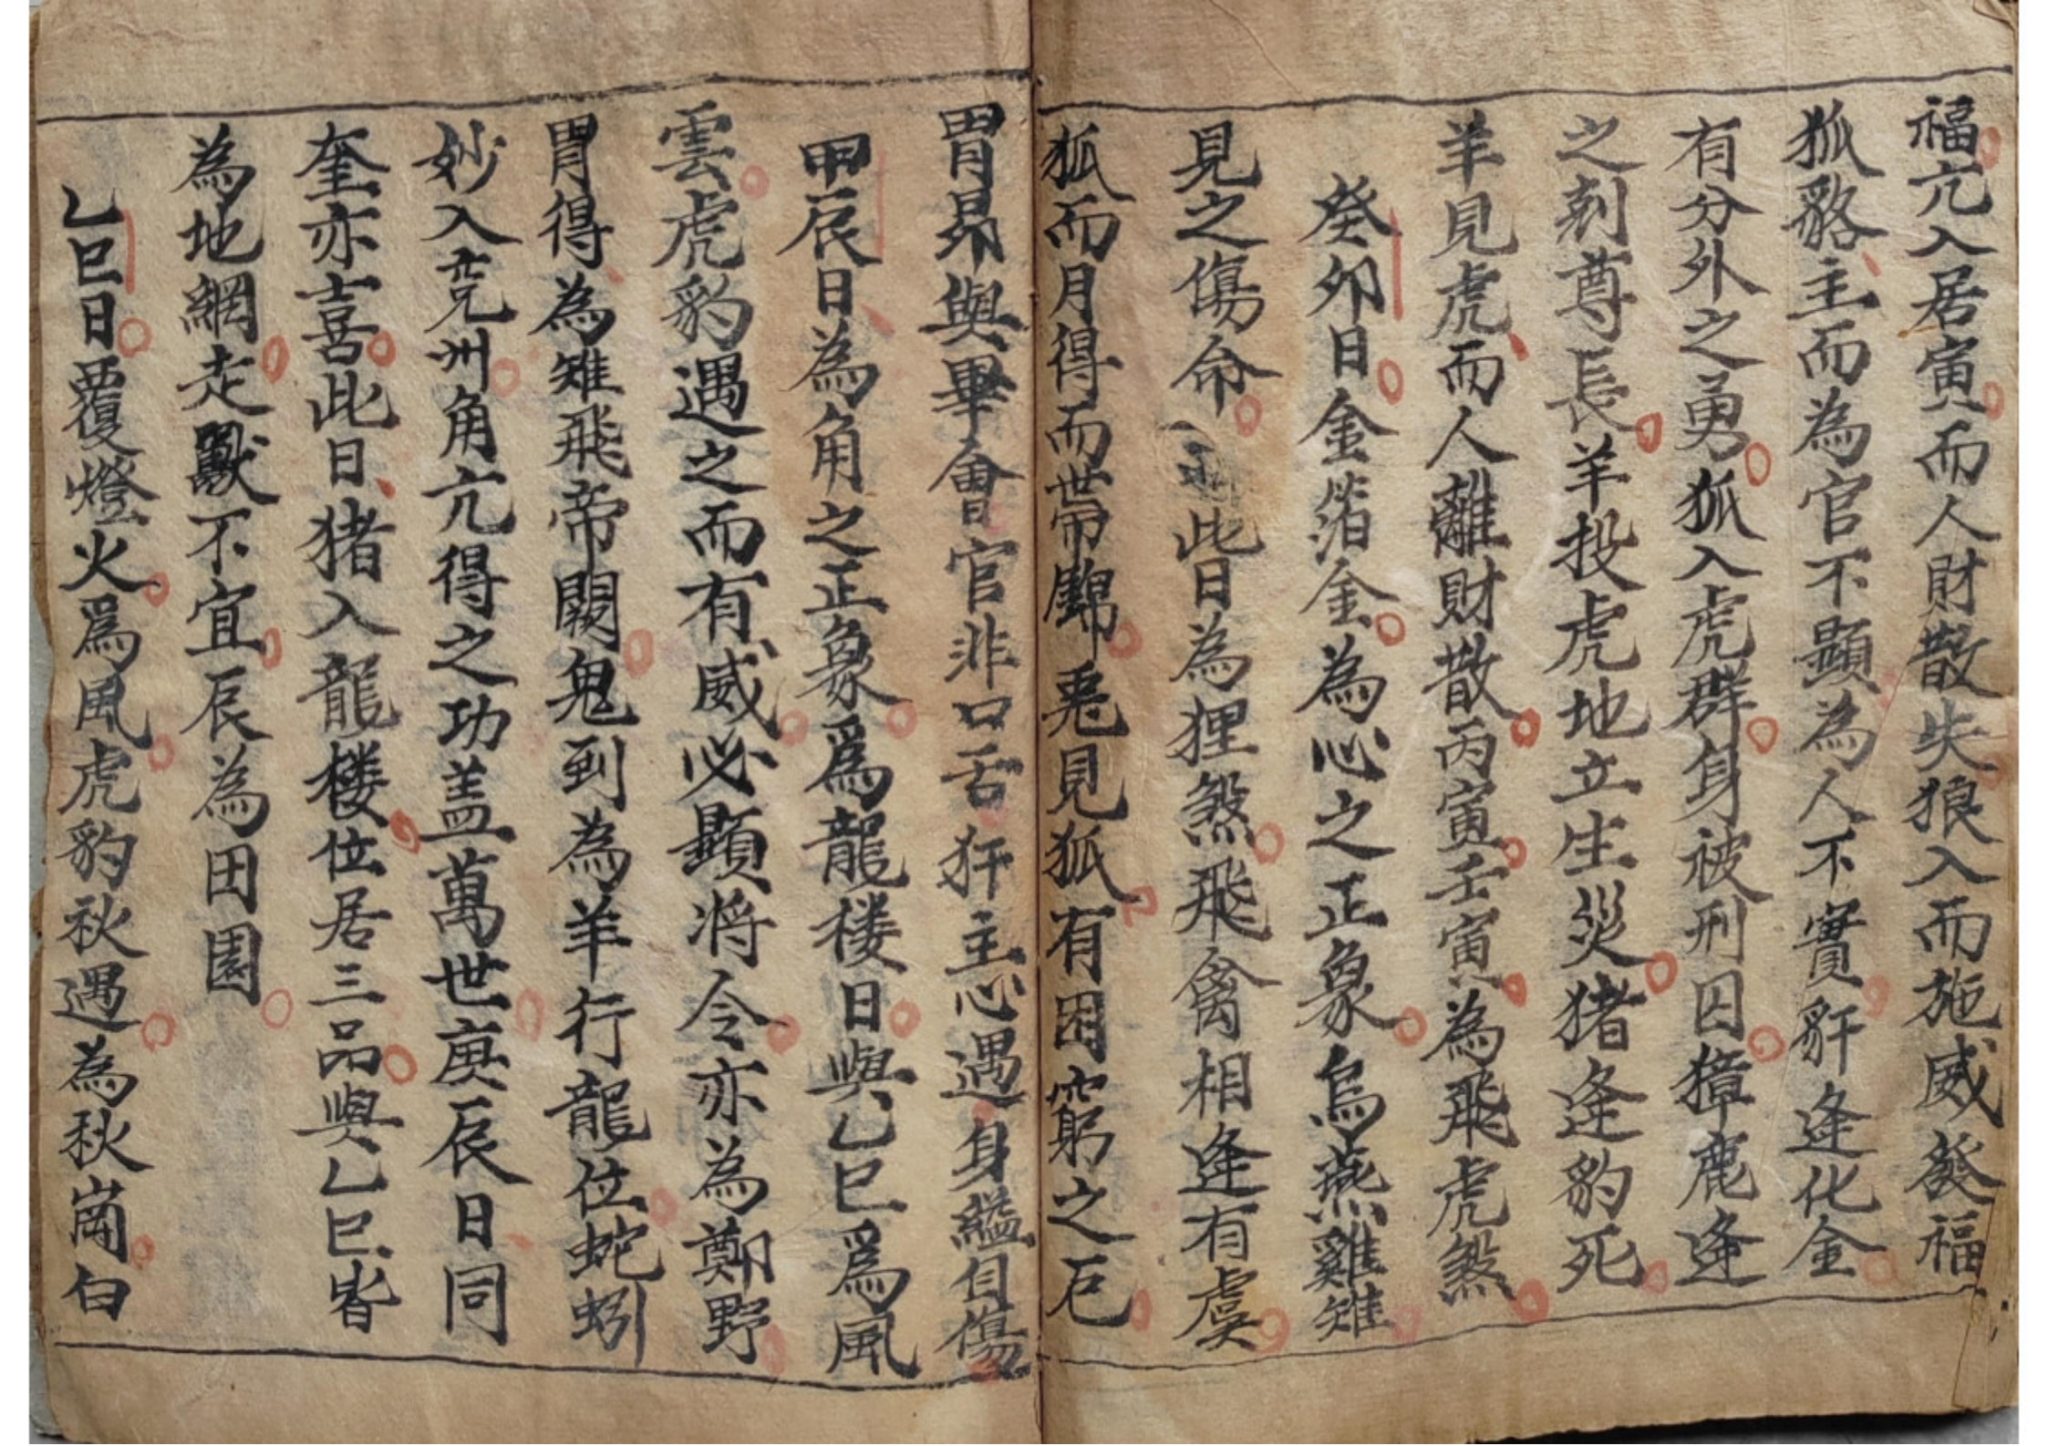 福亢入居寅而人財散失狼入而施威發福
狐貉主而為官不顯為人不實豻逢化金
有分外之勇狐入虎群身被刑囚獐鹿逢
之刻尊長羊投虎地立生災猪逢豹死
羊見虎而人離財散丙寅壬寅為飛虎煞
癸卯日金箔金為心之正象烏燕雞雉
見之傷命此日為狸煞飛禽相逢有虞
狐而月得而帶錦兎見狐有困窮之厄
胃昴與畢會官非口舌犴主心遇身縊自傷
甲辰日為角之正象爲龍楼日與乙巳爲風
雲虎豹遇之而有威必顯将令亦為鄭野
胃得為雉飛帝闕鬼到為羊行龍位蛇蚓
妙入兖州角亢得之功盖萬世庚辰日同
奎亦喜此日猪入龍楼位居三品與乙巳皆
為地網走獸不宜辰為田園
乙巳日覆燈火爲風虎豹秋遇為秋崗白